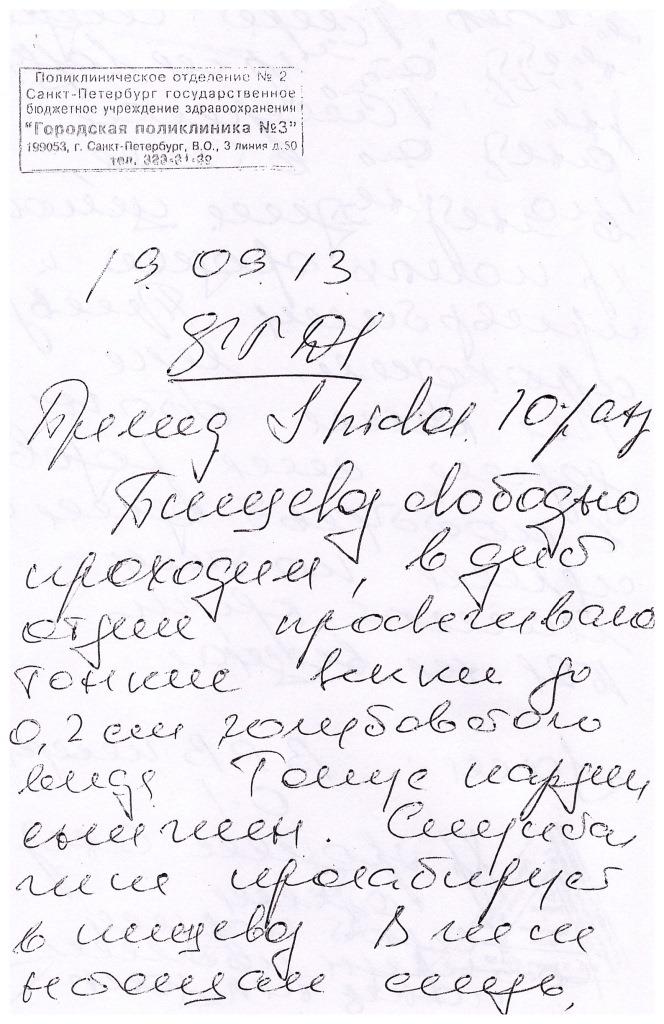 Поликлиническое отделение № 2
Санкт-Петербург государственное
бюджетное учреждение здравоохранения
"Городская поликлиника №3"
199053, г. Санкт-Петербург, В.О., 3 линия д.50
тел. 323-31-39
19.09.13
ФГДС
Lidoc. 10%
Пищевод свободно
проходим, в дист
отделе просвечивают
тонкие венки до
0,2 см голубоватого
вида Тонус кардии
снижен. Слизистая
пролабирует
в пищевод В жел
натощак слизь,